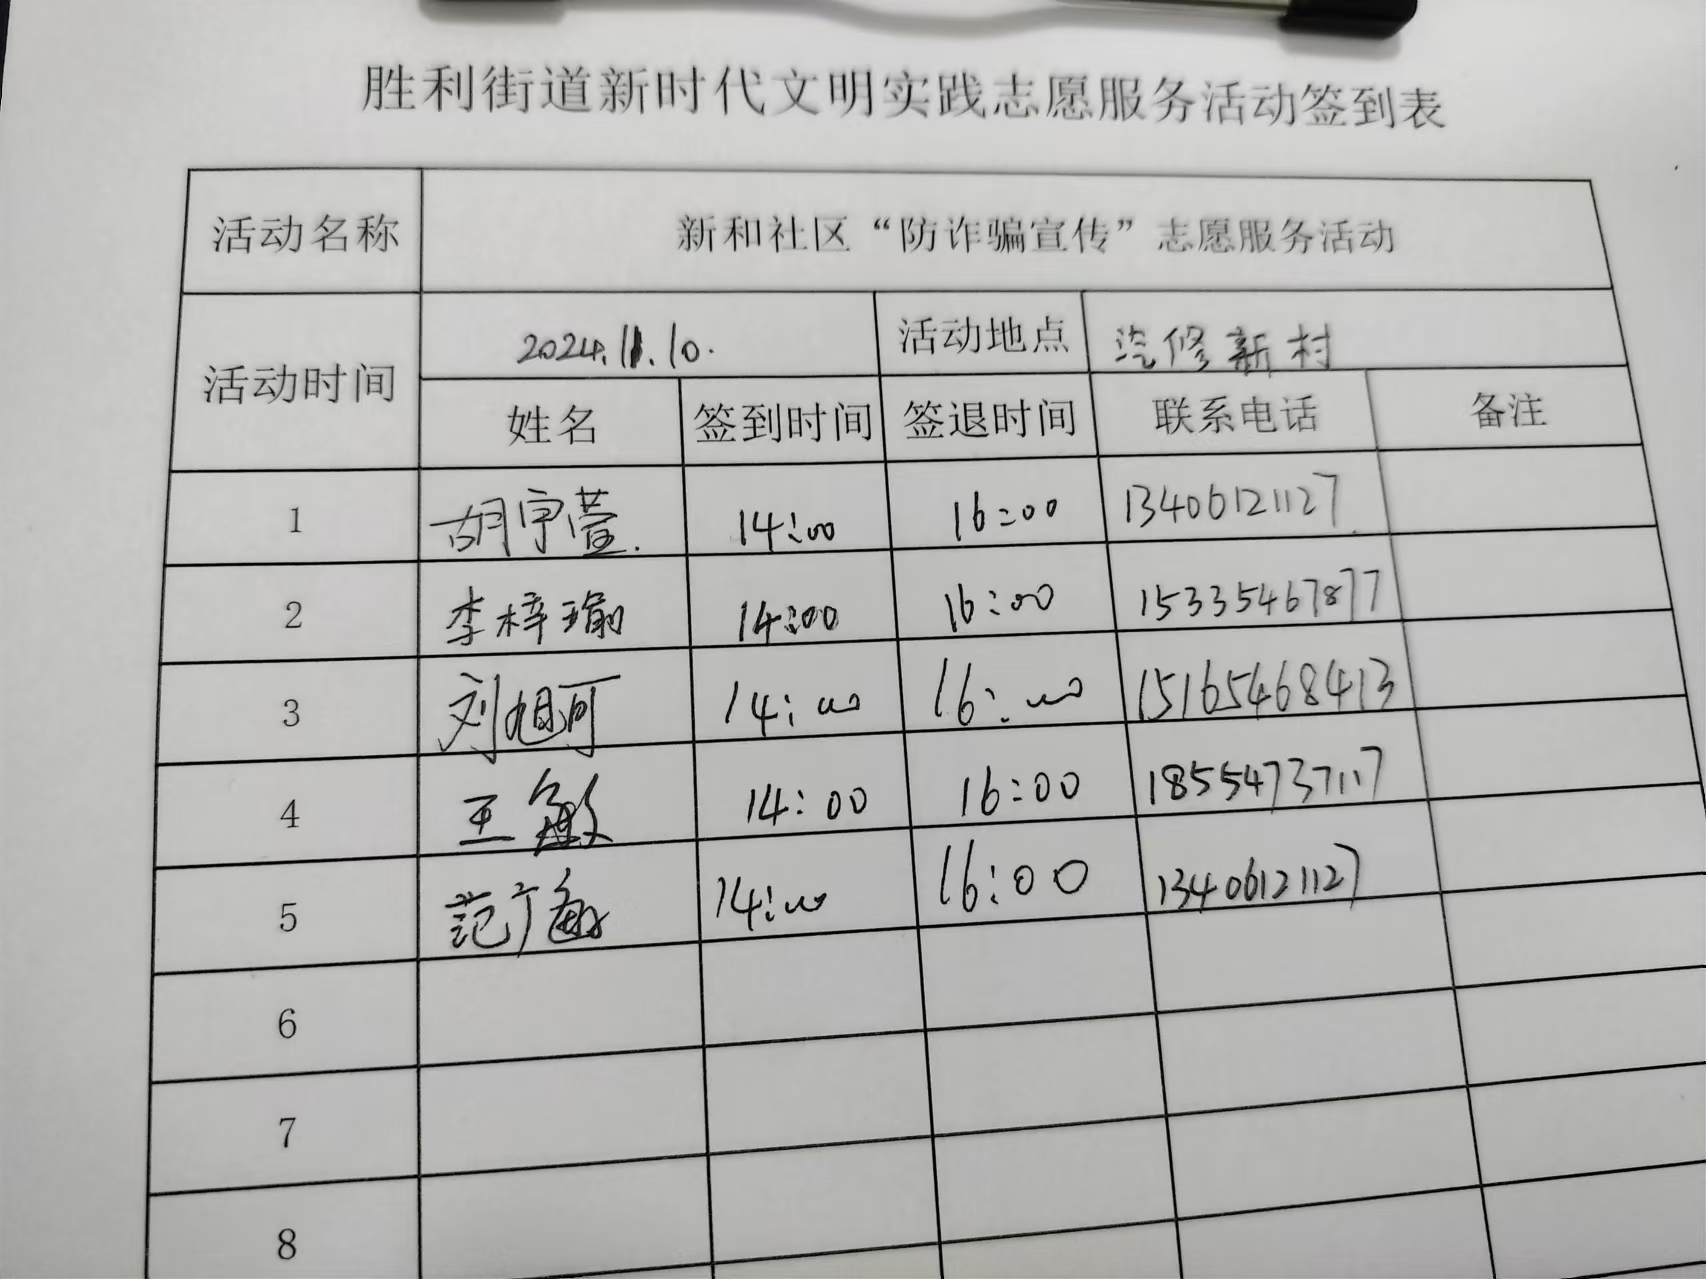 胜利街道新时代文明实践志愿服务活动签到表
活动名称 新和社区“防诈骗宣传”志愿服务活动
活动时间 2024.11.10. 活动地点 汽修新村
姓名 签到时间 签退时间 联系电话 备注
1 胡宇萱. 14:00 16:00 13406121127
2 李梓瑜 14:00 16:00 15335467877
3 刘旭可 14:00 16:00 15165468413
4 王敏 14:00 16:00 18554737117
5 范广敏 14:00 16:00 13406121127
6
7
8